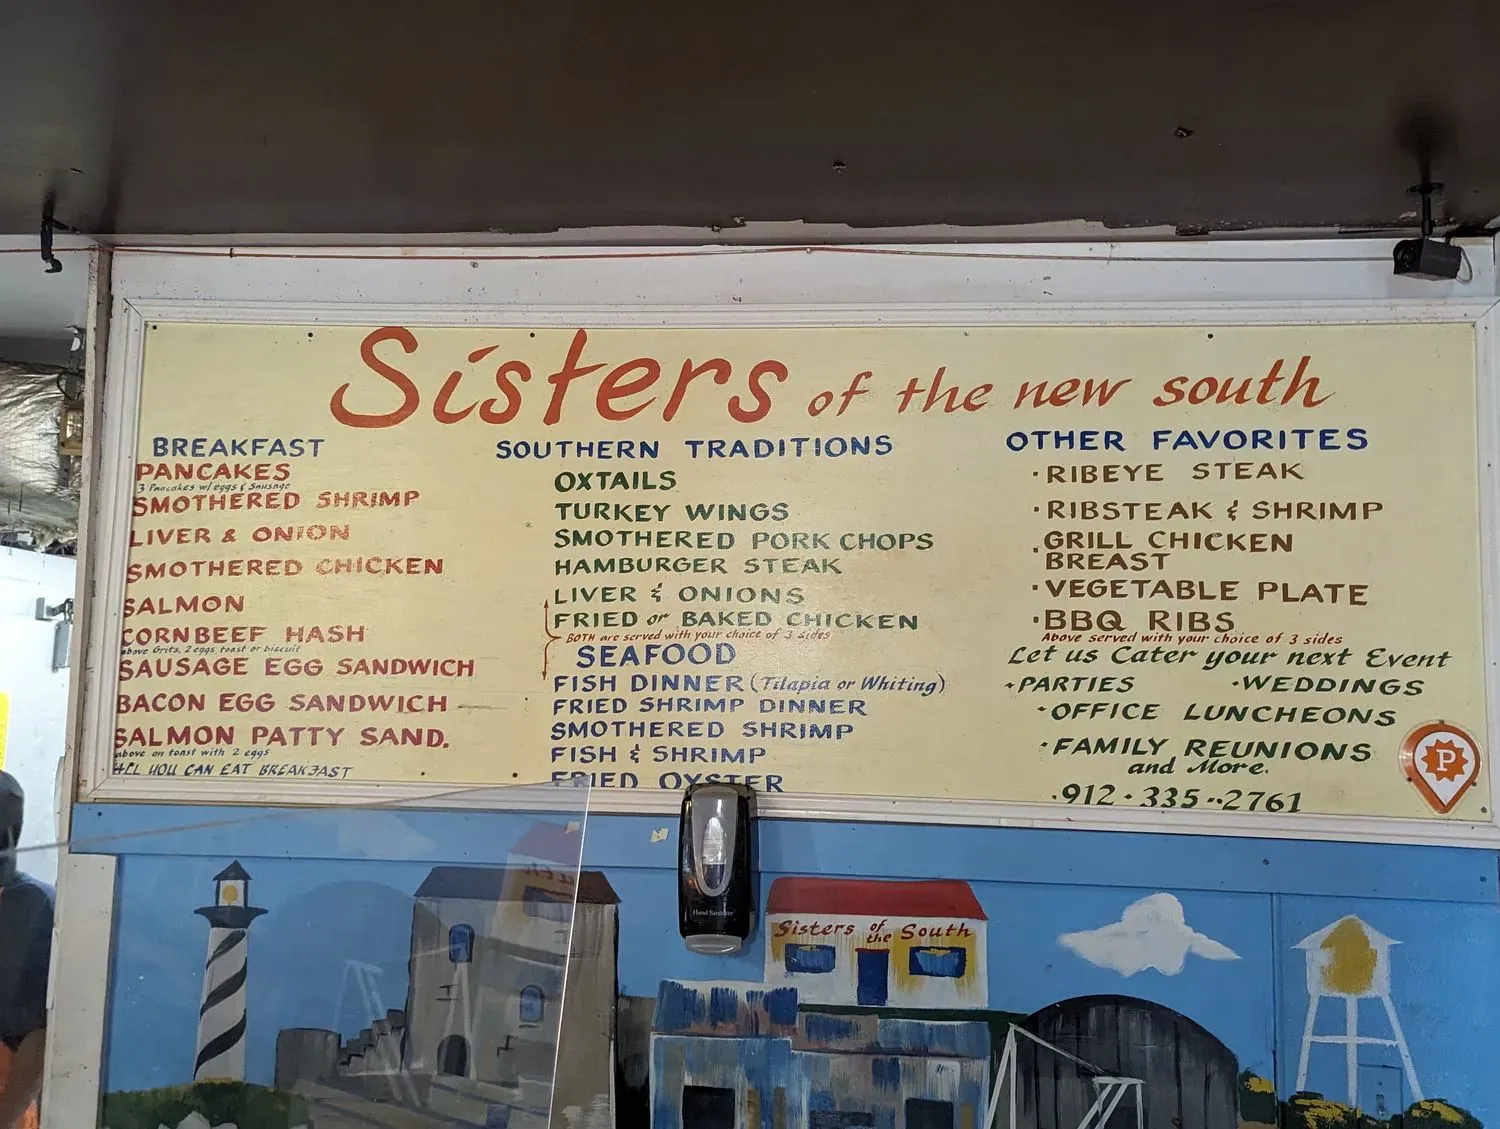 Sisters of the new south
BREAKFAST
PANCAKES
3 Pancakes w/ eggs & Sausage
SMOTHERED SHRIMP
LIVER & ONION
SMOTHERED CHICKEN
SALMON
CORNBEEF HASH
above Grits, 2 eggs, toast or biscuit
SAUSAGE EGG SANDWICH
BACON EGG SANDWICH
SALMON PATTY SAND.
above on toast with 2 eggs
ALL YOU CAN EAT BREAKFAST
SOUTHERN TRADITIONS
OXTAILS
TURKEY WINGS
SMOTHERED PORK CHOPS
HAMBURGER STEAK
LIVER & ONIONS
FRIED or BAKED CHICKEN
BOTH are served with your choice of 3 sides
SEAFOOD
FISH DINNER (Tilapia or Whiting)
FRIED SHRIMP DINNER
SMOTHERED SHRIMP
FISH & SHRIMP
FRIED OYSTER
OTHER FAVORITES
·RIBEYE STEAK
·RIBSTEAK & SHRIMP
·GRILL CHICKEN
BREAST
·VEGETABLE PLATE
·BBQ RIBS
Above served with your choice of 3 sides
Let us Cater your next Event
·PARTIES ·WEDDINGS
·OFFICE LUNCHEONS
·FAMILY REUNIONS
and More.
·912·335··2761
P
Hand Sanitizer
Sisters of the South